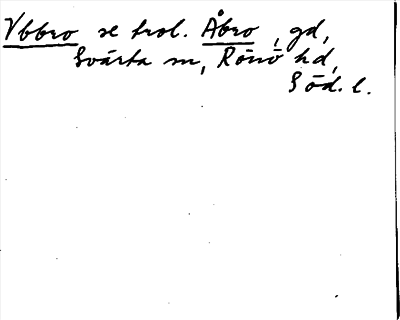 Ybbro se trol. Åbro, gd,
Svärta sn, Rönö hd,
Söd. l.